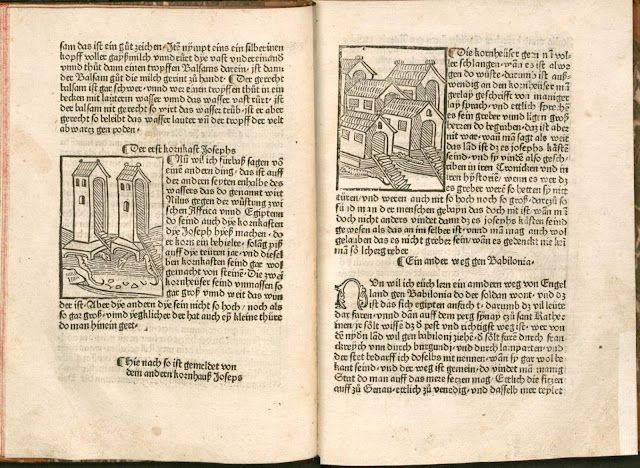 sam das ist ein gůt zeichen. Jtē nympt eins ein silberinen
kopff voller gayßmilch vnnd rüet dye vast vndereinand
vnnd thůt dann einen tropffen Balsams darein. jst dann
der Balsam gůt die milch gerint zů handt. Der gerecht
balsam ist gar schwer. vnnd wer einen tropffen thůt in ein
becken mit lauterm wasser vnnd das wasser vast rürt. ist
der balsam nit gerecht so wirt das wasser trüb. ist er aber
gerecht so beleibt das wasser lauter vnd der tropff der velt
abwartz gen poden.
Der erst kornkast Josephs
Nů wil ich fürbaß sagen vō
eine andern ding. das ist auff
der andern seyten enhalbe des
wassers das do genannt wirt
Nilus gegen der wüstung zwi
schen Affrica vnnd Egipten
do seind auch dye kornkasten
dye Joseph hyeß machen. do
er korn ein behielte. solāg pyß
auff dye teüren zeit. vnd diesel
ben kornkasten seind gar wol
gemacht von steinē. Die zwei
kornheüser seind vnmassen so
gar groß vnnd weit das wun
der ist. Aber dye andern dye sein nicht so hoch. noch als
so gar groß. vnnd yegklicher der hat auch eyn kleine thüre
do man hinein geet.
Hie nach so ist gemeldet von
dem andern kornhauß Joseps
Die kornheüser seind nū vol
ler schlangen. wān es ist alwe
gen do wüste. darumb ist auß
wendig an den kornheüser mā
gerlay geschrifft von maniger
lay sprach. vnd ettlich sprechē
es sein greber vnnd ligen groß
herren do begraben. daz ist aber
nit war. wān man sagt als weit
das land ist dz es josephs kästē
seind. vnd sy vinde also geschri
ben in iren Cronicken vnd in
iren hystoriē. wenn es wer dz
es greber werē so hetten sy nit
türen. vnd weren auch nit so hoch noch so groß. darzů so
dz man der menschen gebayn das doch nit ist. wān mā
doch nicht anders vindet dann dz es josephs kästen seind
gewesen als das an im selber ist. vnnd mā mag auch wol
gelauben das es nicht greber sein. wān es gedenckt nie kei
mā solicher greber
Ein ander weg gen Babilonia.
Nun wil ich eüch len ein anndern weg von Engel
land gen Babilonia do der soldan wont. vnd dz
ist das sich egipten ansicht. darumb dz vil leüte
dar faren. vnnd dān auff dem perg synay zů sant Kathe
rinen. je sölt wissē dz d pest vnd richtigst weg ist. wer von
dē nydn länd wil gen babiloni ziehē. d sölt farē durch fran
ckreych vnn durch burgundi. vnd durch lamparten. vnd
der stet bedarff ich doselbs nit nennen. wān sy gar wol be
kant seind. vnd der weg ist gemein. do vindet mā manig
Stat do man auff das mere sitzen mag. Ettlich die sitzen
auff zů Genau. ettlich zů venedig. vnd dasselb mer teylet